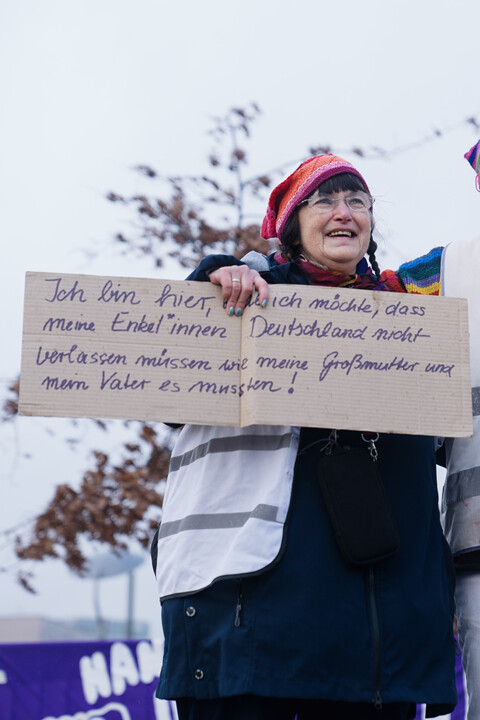 Ich bin hier, ich möchte, dass
meine Enkel*innen Deutschland nicht
verlassen müssen wie meine Großmutter und
mein Vater es mussten!
HAN